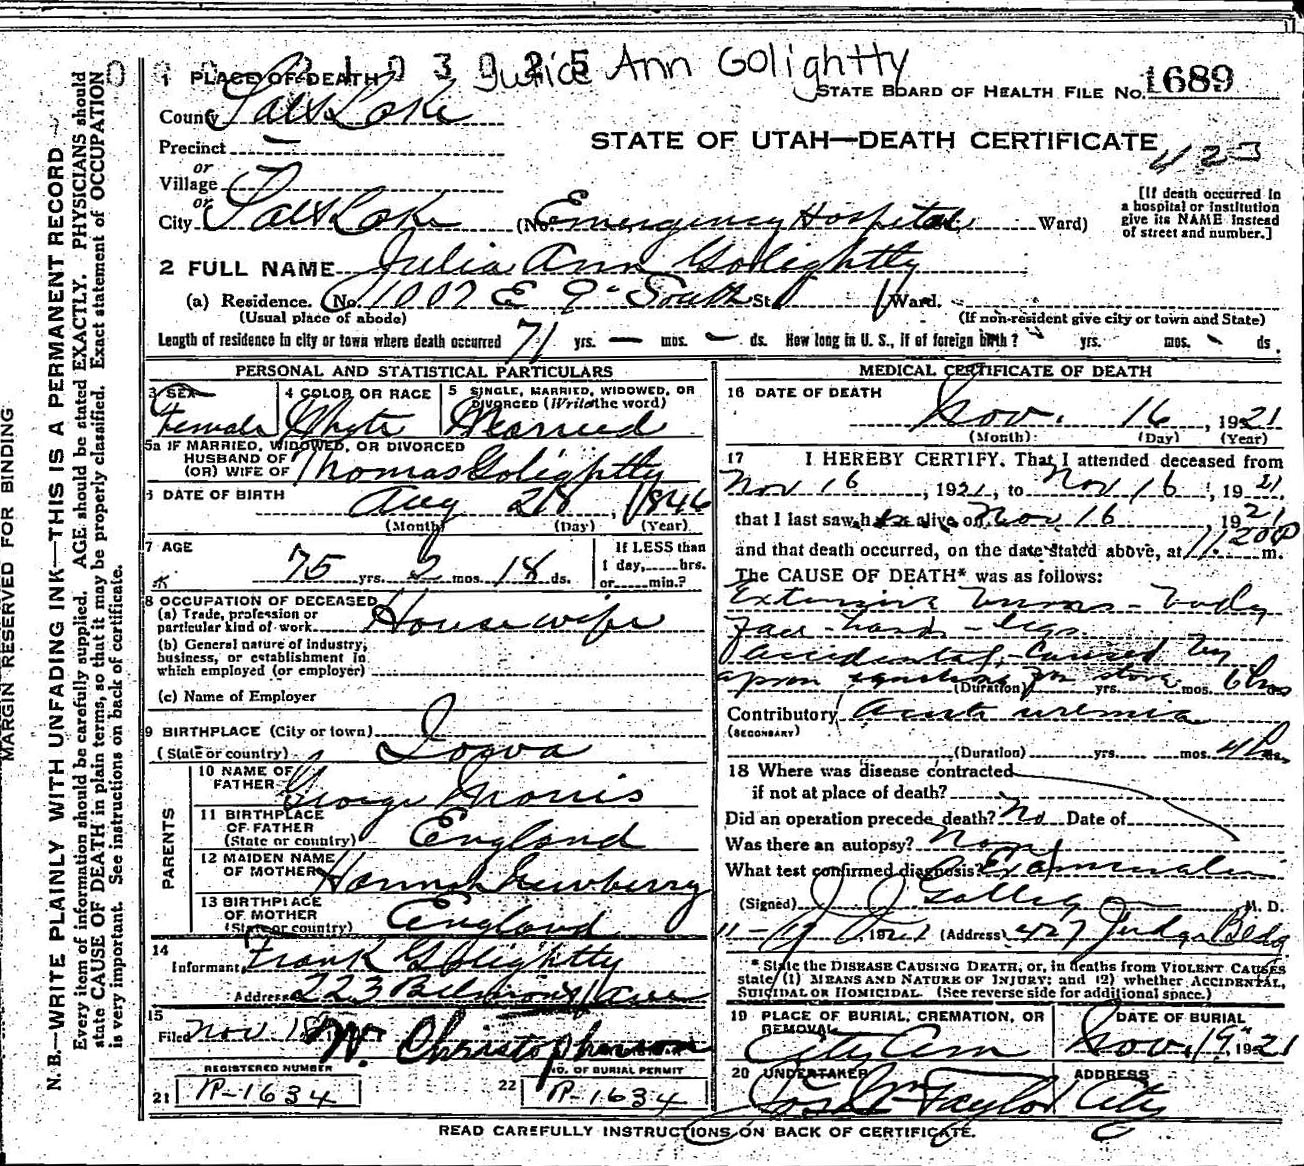 Junice Ann Golightly
1 PLACE OF DEATH
STATE BOARD OF HEALTH FILE NO. 1689
County Salt Lake
STATE OF UTAH—DEATH CERTIFICATE
423
Precinct —
or
Village
or
City Salt Lake (No. Emergency Hospital Ward)
[If death occurred in
a hospital or institution
give its NAME instead
of street and number.]
2 FULL NAME Julia Ann Golightly
(a) Residence. No. 1007 E 9" South St. Ward.
(Usual place of abode) (If non-resident give city or town and State)
Length of residence in city or town where death occurred 71 yrs. — mos. — ds. How long in U. S., if of foreign birth? yrs. mos. ds.
PERSONAL AND STATISTICAL PARTICULARS
3 SEX Female
4 COLOR OR RACE White
5 SINGLE, MARRIED, WIDOWED, OR
DIVORCED (Write the word)
Married
5a IF MARRIED, WIDOWED, OR DIVORCED
HUSBAND OF
(OR) WIFE OF Thomas Golightly
6 DATE OF BIRTH Aug 28, 1846
(Month) (Day) (Year)
7 AGE 75 yrs. 2 mos. 18 ds.
If LESS than
1 day, hrs.
or min.?
8 OCCUPATION OF DECEASED
(a) Trade, profession or
particular kind of work Housewife
(b) General nature of industry,
business, or establishment in
which employed (or employer)
(c) Name of Employer
9 BIRTHPLACE (City or town)
(State or country) Iowa
PARENTS
10 NAME OF
FATHER George Morris
11 BIRTHPLACE
OF FATHER
(State or country) England
12 MAIDEN NAME
OF MOTHER Hannah Newberry
13 BIRTHPLACE
OF MOTHER
(State or country) England
14
Informant Frank Golightly
Address 223 Belmont Ave
15
Filed Nov 18 W. Christopherson
REGISTERED NUMBER
21 P-1634
NO. OF BURIAL PERMIT
22 P-1634
MEDICAL CERTIFICATE OF DEATH
16 DATE OF DEATH
Nov. 16, 1921
(Month) (Day) (Year)
17 I HEREBY CERTIFY, That I attended deceased from
Nov 16, 1921, to Nov 16, 1921
that I last saw her alive on Nov 16, 1921
and that death occurred, on the date stated above, at 11.20 P m.
The CAUSE OF DEATH* was as follows:
Extensive burns - body
face - hands - legs.
Accidental, caused by
apron igniting on stove
(Duration) yrs. mos. 6 hrs
Contributory Acute uremia
(SECONDARY)
(Duration) yrs. mos. 4 hrs
18 Where was disease contracted
if not at place of death?
Did an operation precede death? No Date of
Was there an autopsy? None
What test confirmed diagnosis? Examination
(Signed) J J Galligan M. D.
11-17, 1921 (Address) 427 Judge Bldg
* State the DISEASE CAUSING DEATH, or, in deaths from VIOLENT CAUSES
state (1) MEANS AND NATURE OF INJURY; and (2) whether ACCIDENTAL,
SUICIDAL OR HOMICIDAL. (See reverse side for additional space.)
19 PLACE OF BURIAL, CREMATION, OR
REMOVAL
City Cem
DATE OF BURIAL
Nov. 19" 1921
20 UNDERTAKER
Jos Wm Taylor
ADDRESS
City
READ CAREFULLY INSTRUCTIONS ON BACK OF CERTIFICATE.
MARGIN RESERVED FOR BINDING
N. B.—WRITE PLAINLY WITH UNFADING INK—THIS IS A PERMANENT RECORD
Every item of information should be carefully supplied. AGE should be stated EXACTLY. PHYSICIANS should
state CAUSE OF DEATH in plain terms, so that it may be properly classified. Exact statement of OCCUPATION
is very important. See instructions on back of certificate.